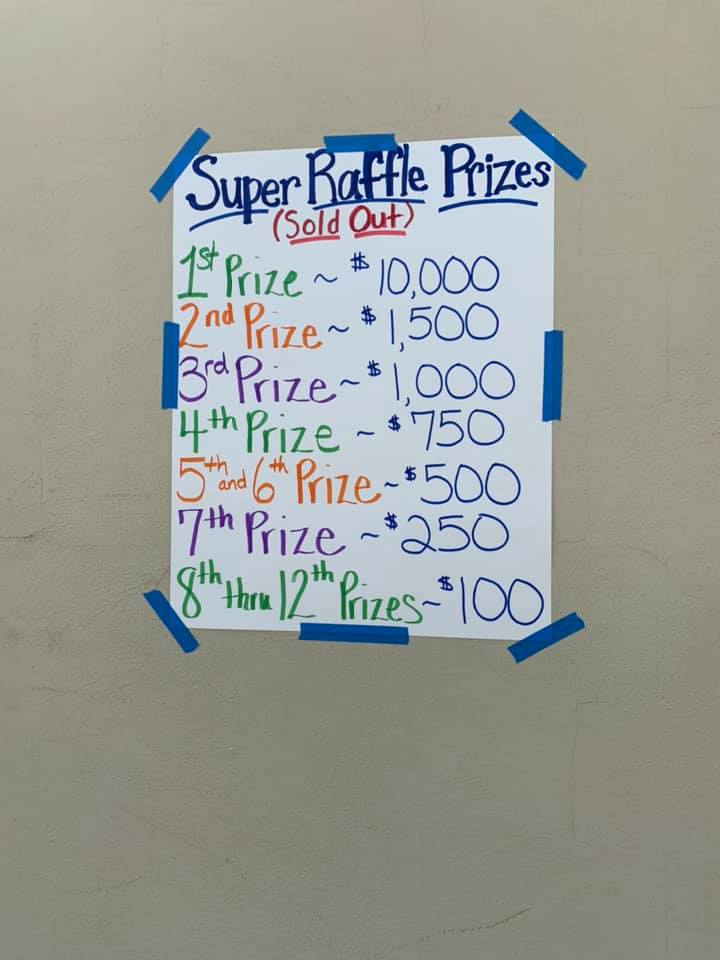 Super Raffle Prizes
(Sold Out)
1st Prize ~ $10,000
2nd Prize ~ $1,500
3rd Prize ~ $1,000
4th Prize ~ $750
5th and 6th Prize ~ $500
7th Prize ~ $250
8th thru 12th Prizes ~ $100